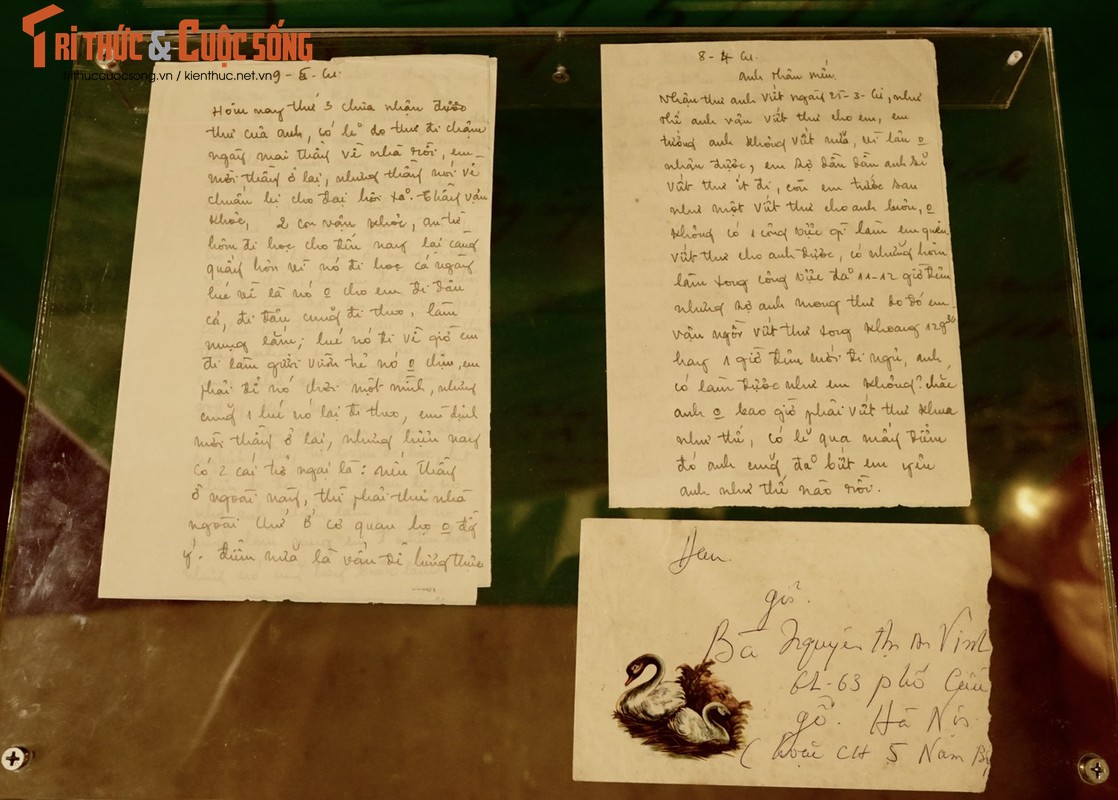 TRI THỨC & CUỘC SỐNG
trithuccuocsong.vn / kienthuc.net.vn
Hôm nay thứ 3 chưa nhận được
thư của anh, có lẽ do thư đi chậm
ngày mai thầy về nhà rồi, em
mời thầy ở lại, nhưng thầy nói về
chuẩn bị cho đại hội xã. Thầy vẫn
khỏe, 2 con vẫn khỏe, an từ
hôm đi học cho đến nay lại càng
quấy hơn vì nó đi học cả ngày
lúc về là nó o cho em đi đâu
cả, đi đâu cũng đi theo, làm
nũng lắm; lúc nó đi về giờ em
đi làm gửi vườn trẻ nó o chịu, em
phải để nó chơi một mình, nhưng
cũng 1 lúc nó lại đi theo, em định
mời thầy ở lại, nhưng hiện nay
có 2 cái trở ngại là: nếu thầy
ở ngoài này, thì phải thuê nhà
ngoài chứ ở cơ quan họ o đồng
ý. điểm nữa là vấn đề lương thực
8-4
anh thân mến.
Nhận thư anh viết ngày 25-3- như
thế anh vẫn viết thư cho em, em
tưởng anh không viết nữa, vì lâu o
nhận được, em sợ dần dần anh sẽ
viết thư ít đi, còn em trước sau
như một viết thư cho anh luôn, o
không có 1 công việc gì làm em quên
viết thư cho anh được, có những hôm
làm xong công việc đã 11-12 giờ đêm
nhưng sợ anh mong thư do đó em
vẫn ngồi viết thư xong khoảng 12g30
hay 1 giờ đêm mới đi ngủ, anh
có làm được như em không? chắc
anh o bao giờ phải viết thư khuya
như thế, có lẽ qua mấy điểm
đó anh cũng đã biết em yêu
anh như thế nào rồi.
gửi
Bà Nguyễn Thị An Vinh
61-63 phố Cầu
gỗ. Hà Nội
(hoặc CH 5 Nam Bộ